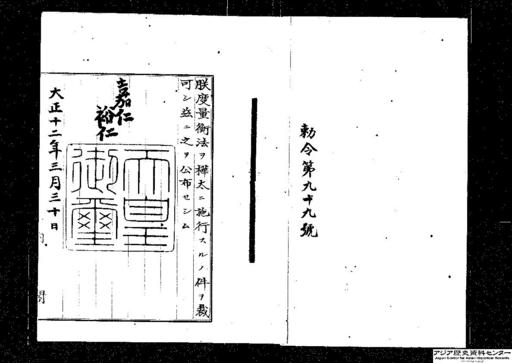 勅令第九十九號
朕度量衡法ヲ樺太ニ施行スルノ件ヲ裁
可シ茲ニ之ヲ公布セシム
嘉仁
裕仁
天皇
御璽
大正十二年三月三十日
アジア歴史資料センター
Japan Center for Asian Historical Records